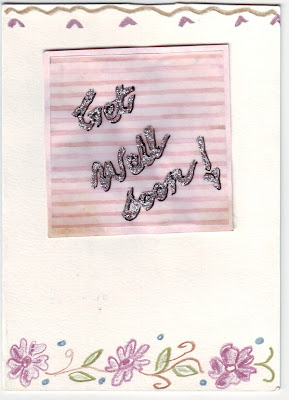 Get
Well
soon!